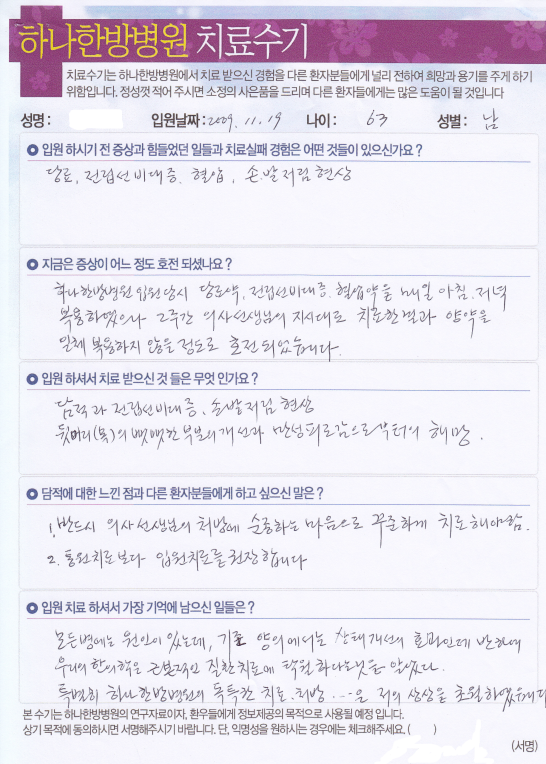 하나한방병원 치료수기
치료수기는 하나한방병원에서 치료 받으신 경험을 다른 환자분들에게 널리 전하여 희망과 용기를 주게 하기
위함입니다. 정성껏 적어 주시면 소정의 사은품을 드리며 다른 환자들에게는 많은 도움이 될 것입니다
성명 : 입원날짜 : 2009. 11. 19 나이 : 63 성별 : 남
입원 하시기 전 증상과 힘들었던 일들과 치료실패 경험은 어떤 것들이 있으신가요 ?
당뇨, 전립선비대증, 혈압, 손.발저림현상
지금은 증상이 어느 정도 호전 되셨나요 ?
하나한방병원 입원당시 당뇨약, 전립선비대증, 혈압약을 매일 아침.저녁
복용하였으나 2주간 의사선생님의 지시대로 치료한결과 양약을
일체 복용하지 않을 정도로 호전되었습니다.
입원 하셔서 치료 받으신 것 들은 무엇 인가요 ?
담적과 전립선비대증, 손발저림현상
뒷머리(목)의 뻣뻣한 부분의 개선과 만성피로감으로부터의 해방.
담적에 대한 느낀 점과 다른 환자분들에게 하고 싶으신 말은 ?
1. 반드시 의사선생님의 처방에 순종하는 마음으로 꾸준하게 치료해야함.
2. 통원치료보다 입원치료를 권장합니다
입원 치료 하셔서 가장 기억에 남으신 일들은 ?
모든병에는 원인이 있는데, 기존 양의에서는 상태개선의 효과인데 반하여
우리의 한의학은 근본적인 질환치료에 탁월하다는것을 알았다.
특별히 하나한방병원의 독특한 치료.처방 ...은 저의 상상을 초월하였습니다
본 수기는 하나한방병원의 연구자료이자, 환우들에게 정보제공의 목적으로 사용될 예정 입니다.
상기 목적에 동의하시면 서명해주시기 바랍니다. 단, 익명성을 원하시는 경우에는 체크해주세요. ( )
(서명)